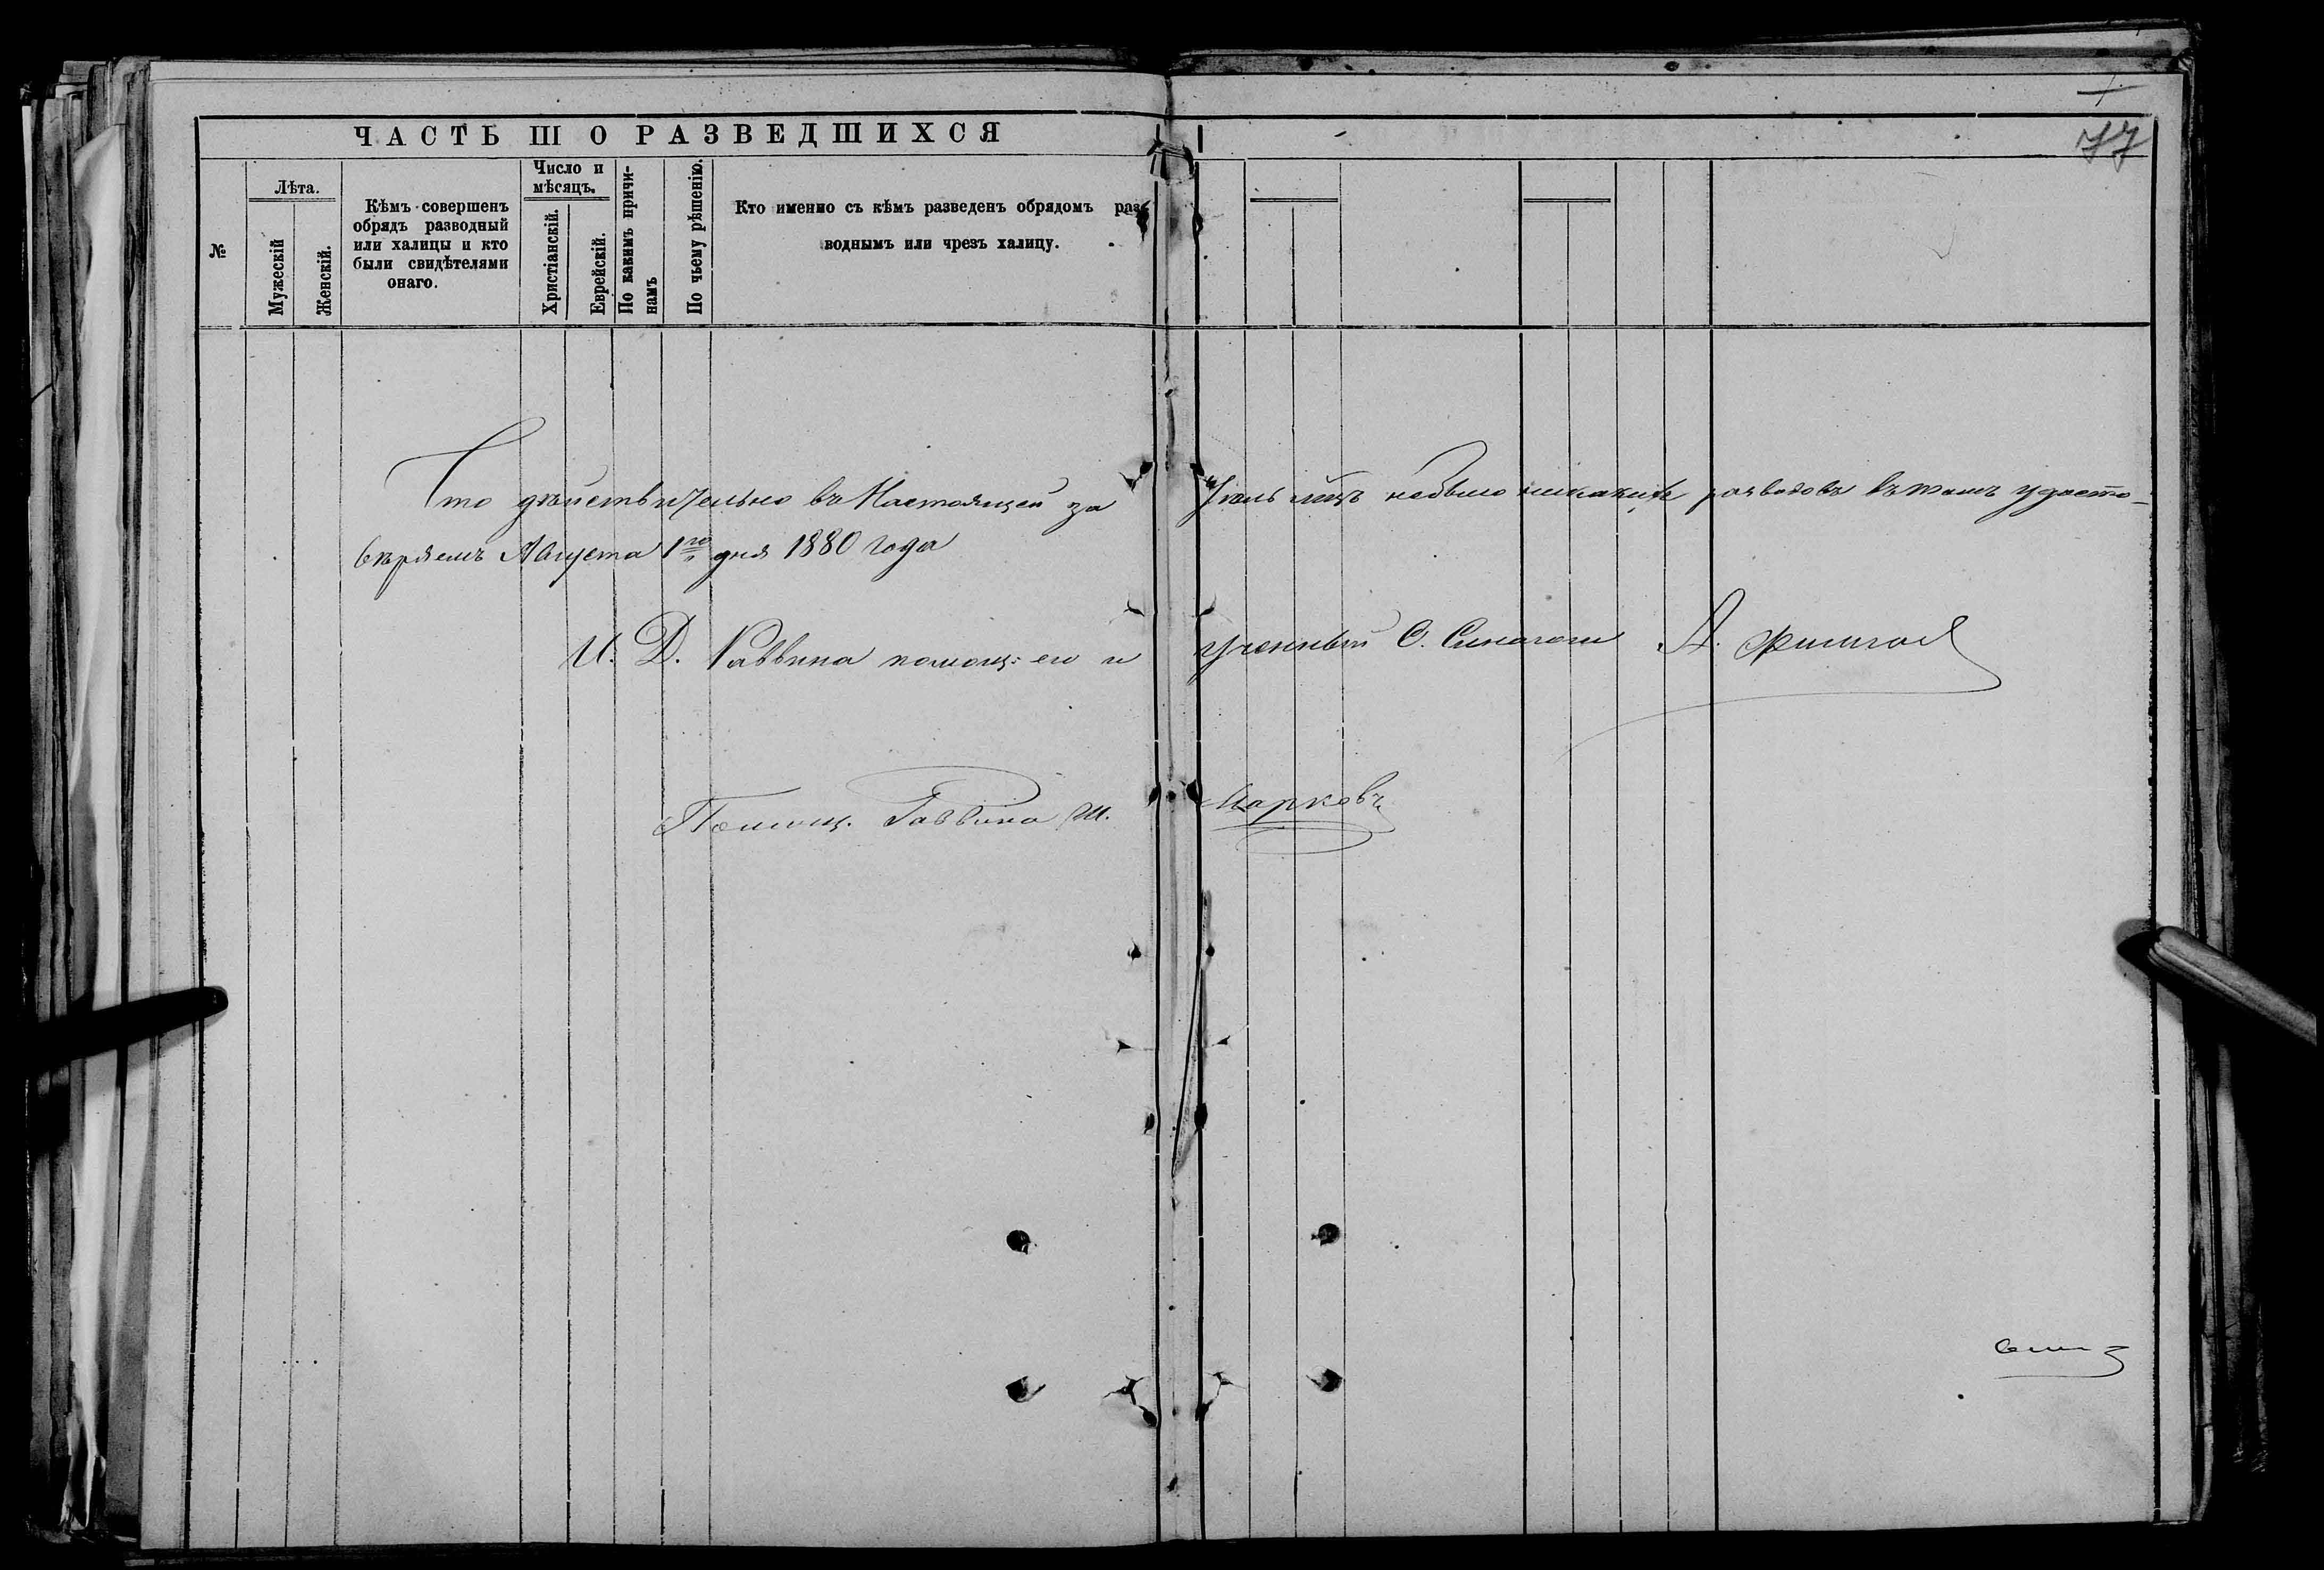 77
ЧАСТЬ III О РАЗВЕДШИХСЯ
№
Лѣта.
Мужескій
Женскій.
Кѣмъ совершенъ
обрядъ разводный
или халицы и кто
были свидѣтелями
онаго.
Число и
мѣсяцъ.
Христіанскій.
Еврейскій.
По какимъ причи-
намъ
По чьему рѣшенію.
Кто именно съ кѣмъ разведенъ обрядомъ раз-
воднымъ или чрезъ халицу.
Что дѣйствительно въ Настоящей за Іюль мѣцъ небыло никакихъ разводовъ въ томъ удосто-
вѣряемъ Августа 1го дня 1880 года
И. Д. Раввина помощ: его и Ученный О. Синагоги А.
Помощ. Раввина Ш. Марковъ